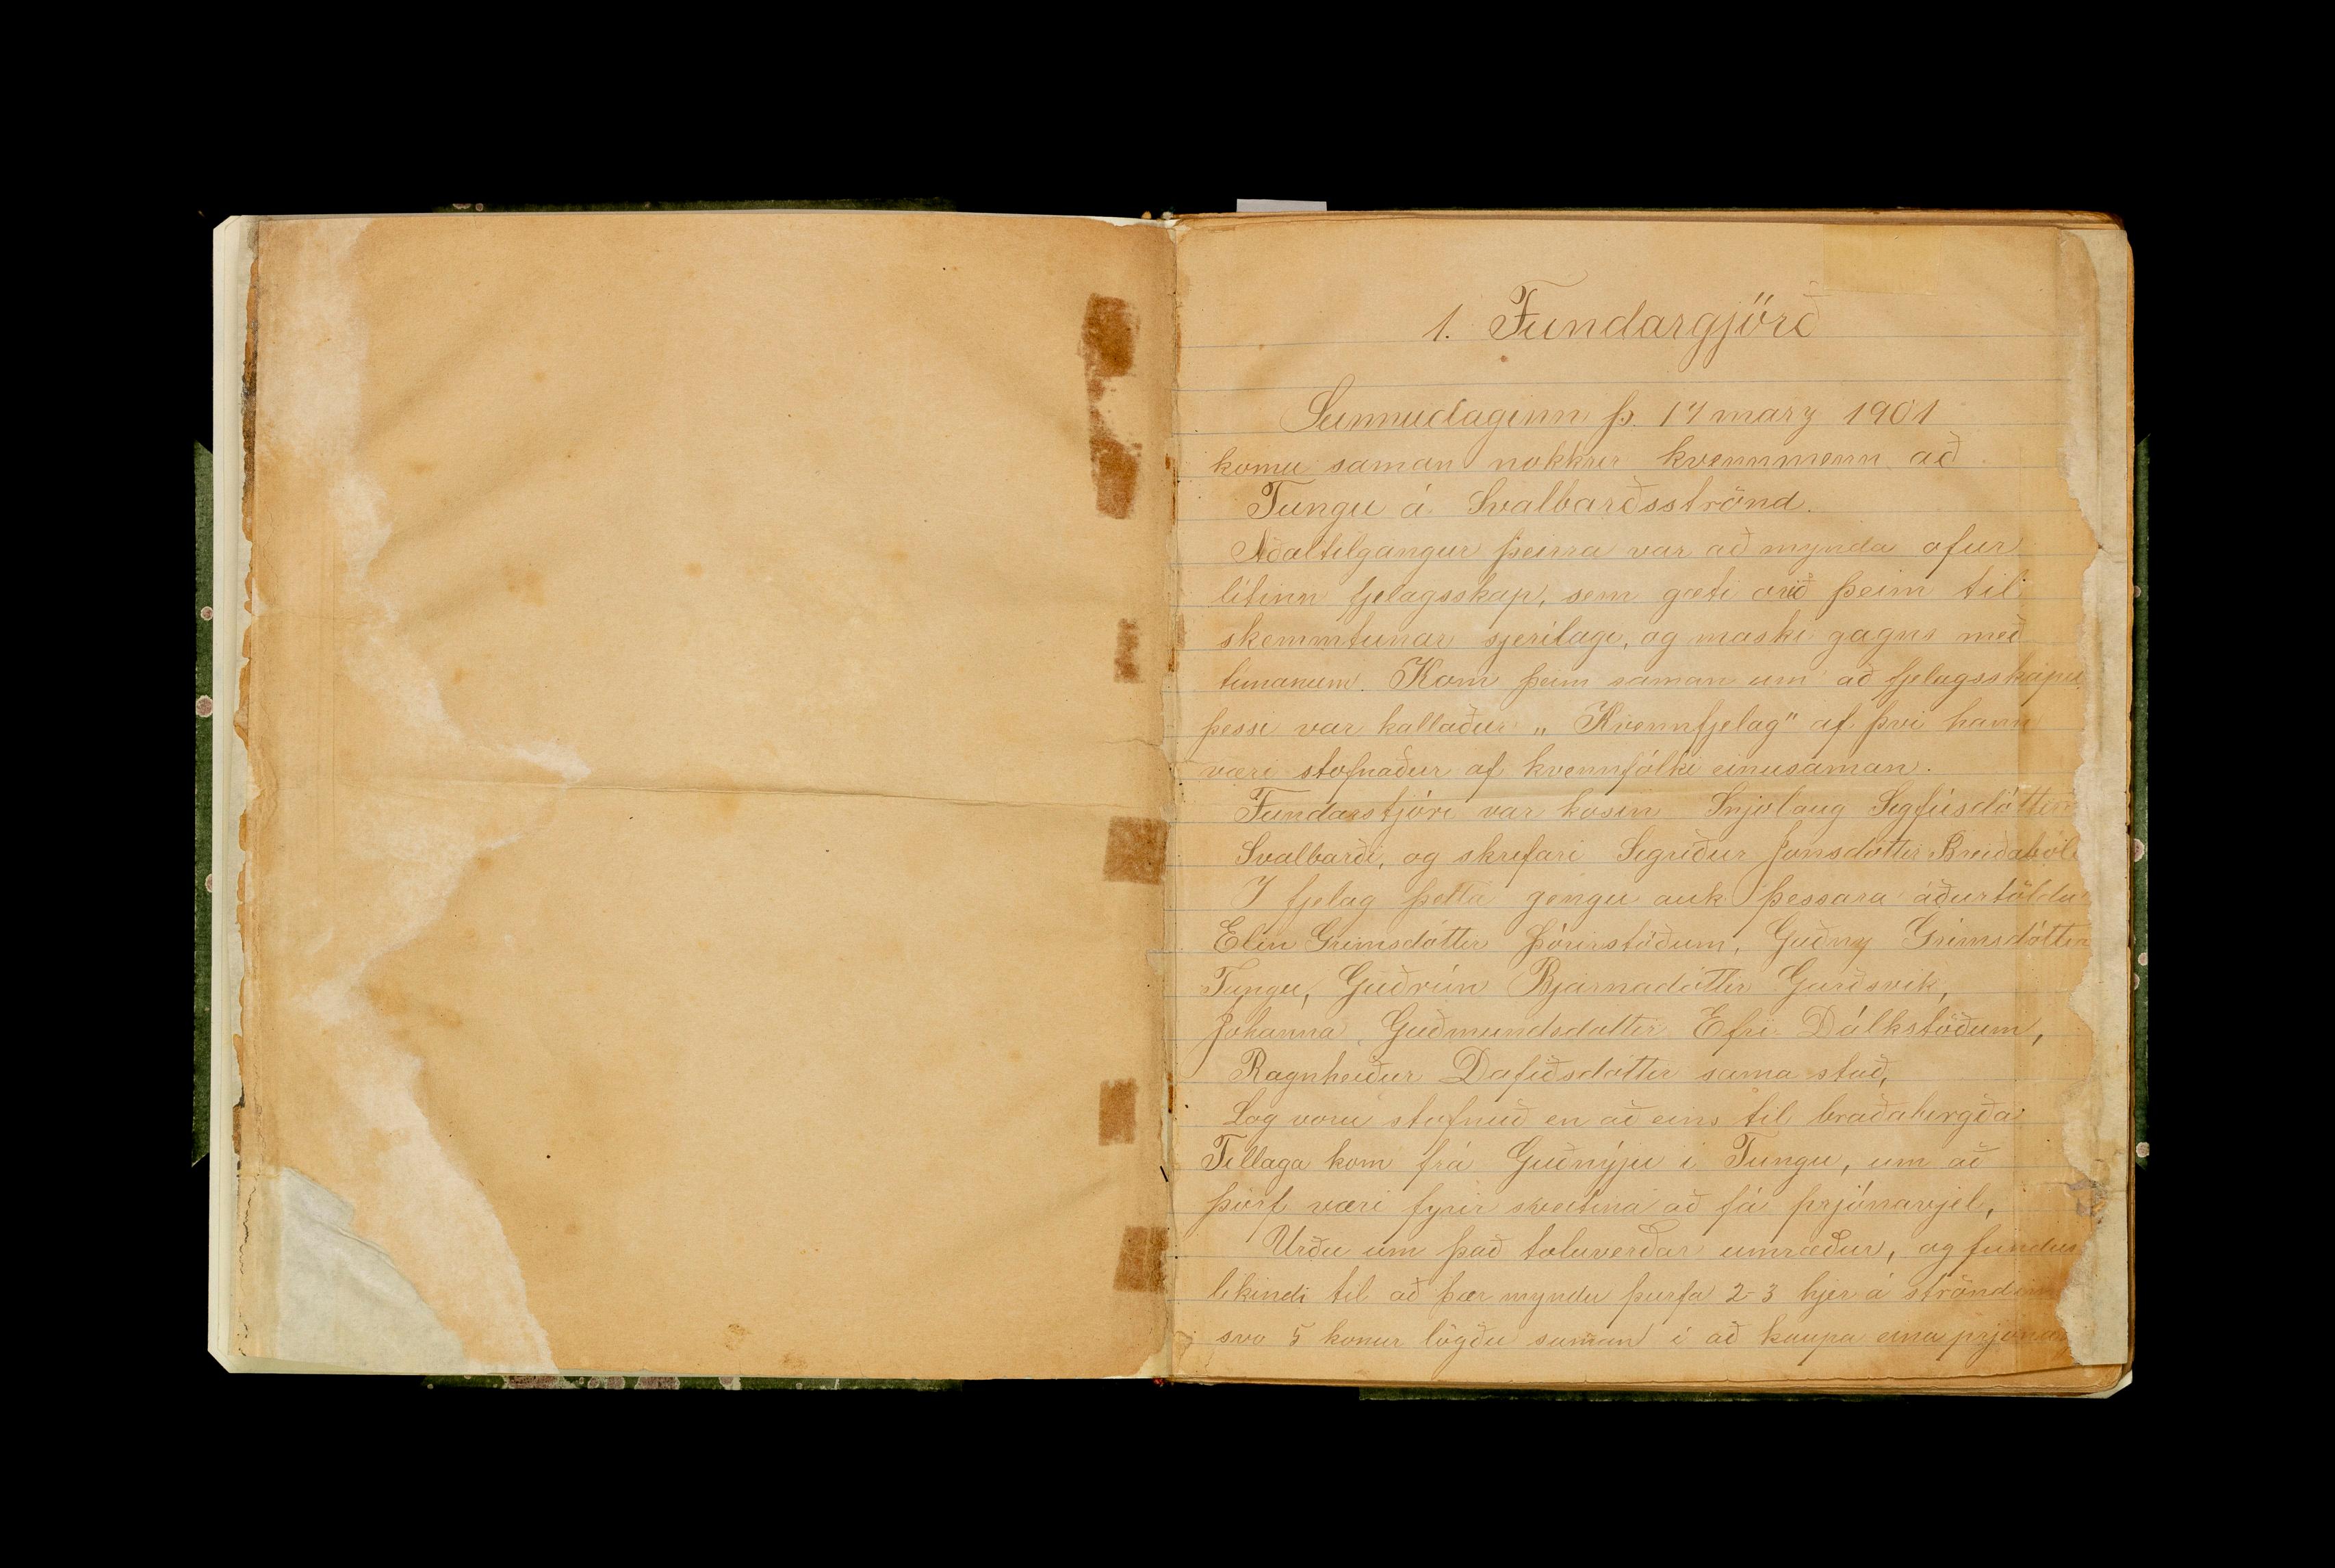 1. Fundargjörð
Sunnudaginn þ. 17 marz 1901
komu saman nokkrir kvennmenn að
Tungu á Svalbarðsströnd.
Aðaltilgangur þeirra var að mynda ofur
lítinn fjelagsskap, sem gæti orið þeim til
skemmtunar sjerílagi, og maski gagns með
timanum. Kom þeim saman um að fjelagsskapu
þessi var kallaður „Kvennfjelag" af þvi hann
væri stofnaður af kvennfólki einusaman.
Fundarstjóri var kosin Snjolaug Sigfúsdóttir
Svalbarði, og skrifari Sigriður Jónsdóttir Breiðaból
I fjelag þetta gengu auk þessara áðurtöldu
Elín Grimsdóttir Þórisstöðum, Guðny Grimsdóttir
Tungu, Guðrún Bjarnadóttir Garðsvík,
Johanna Guðmundsdottir Efri Dálkstöðum,
Ragnheiður Dafiðsdóttir sama stað,
Log voru stofnuð en að eins til braðabirgða
Tillaga kom frá Guðnýju i Tungu, um að
þörf væri fyrir sveitina að fá prjónavjel,
Urðu um það toluverðar umræður, og fundus
likindi til að þær myndu þurfa 2-3 hjer á strönd
svo 5 konur lögðu saman í að kaupa eina